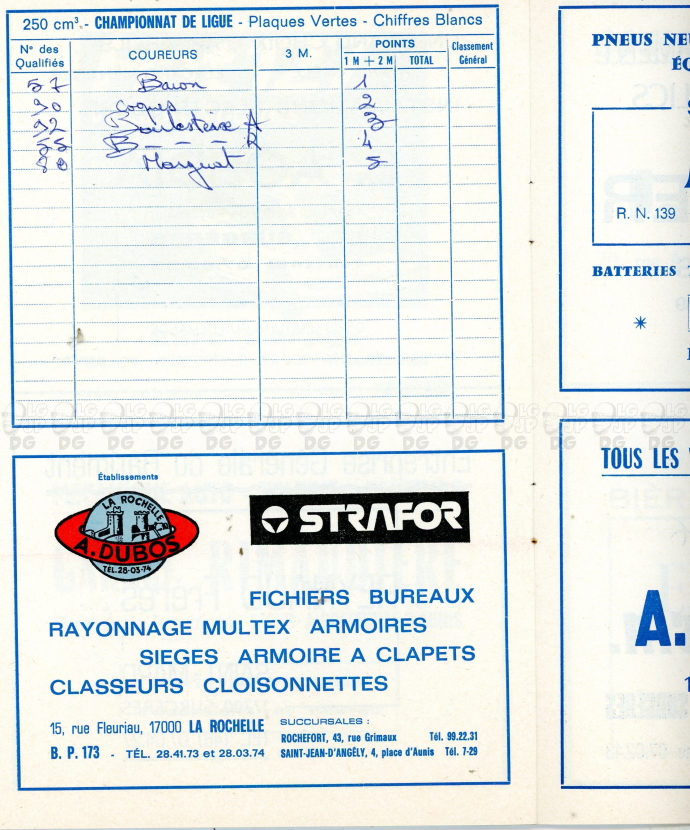 250 cm³ - CHAMPIONNAT DE LIGUE - Plaques Vertes - Chiffres Blancs
N° des Qualifiés COUREURS 3 M. POINTS Classement Général
1 M + 2 M TOTAL
57 Baron 1
90 coques 2
92 A 3
55 B - - - R 4
80 Marquat 5
Établissements
LA ROCHELLE
A. DUBOS
TÉL. 28-03-74
STRAFOR
FICHIERS BUREAUX
RAYONNAGE MULTEX ARMOIRES
SIEGES ARMOIRE A CLAPETS
CLASSEURS CLOISONNETTES
15, rue Fleuriau, 17000 LA ROCHELLE
B. P. 173 - TÉL. 28.41.73 et 28.03.74
SUCCURSALES :
ROCHEFORT, 43, rue Grimaux Tél. 99.22.31
SAINT-JEAN-D'ANGÉLY, 4, place d'Aunis Tél. 7-29
PNEUS
R. N. 139
BATTERIES
TOUS LES
A.